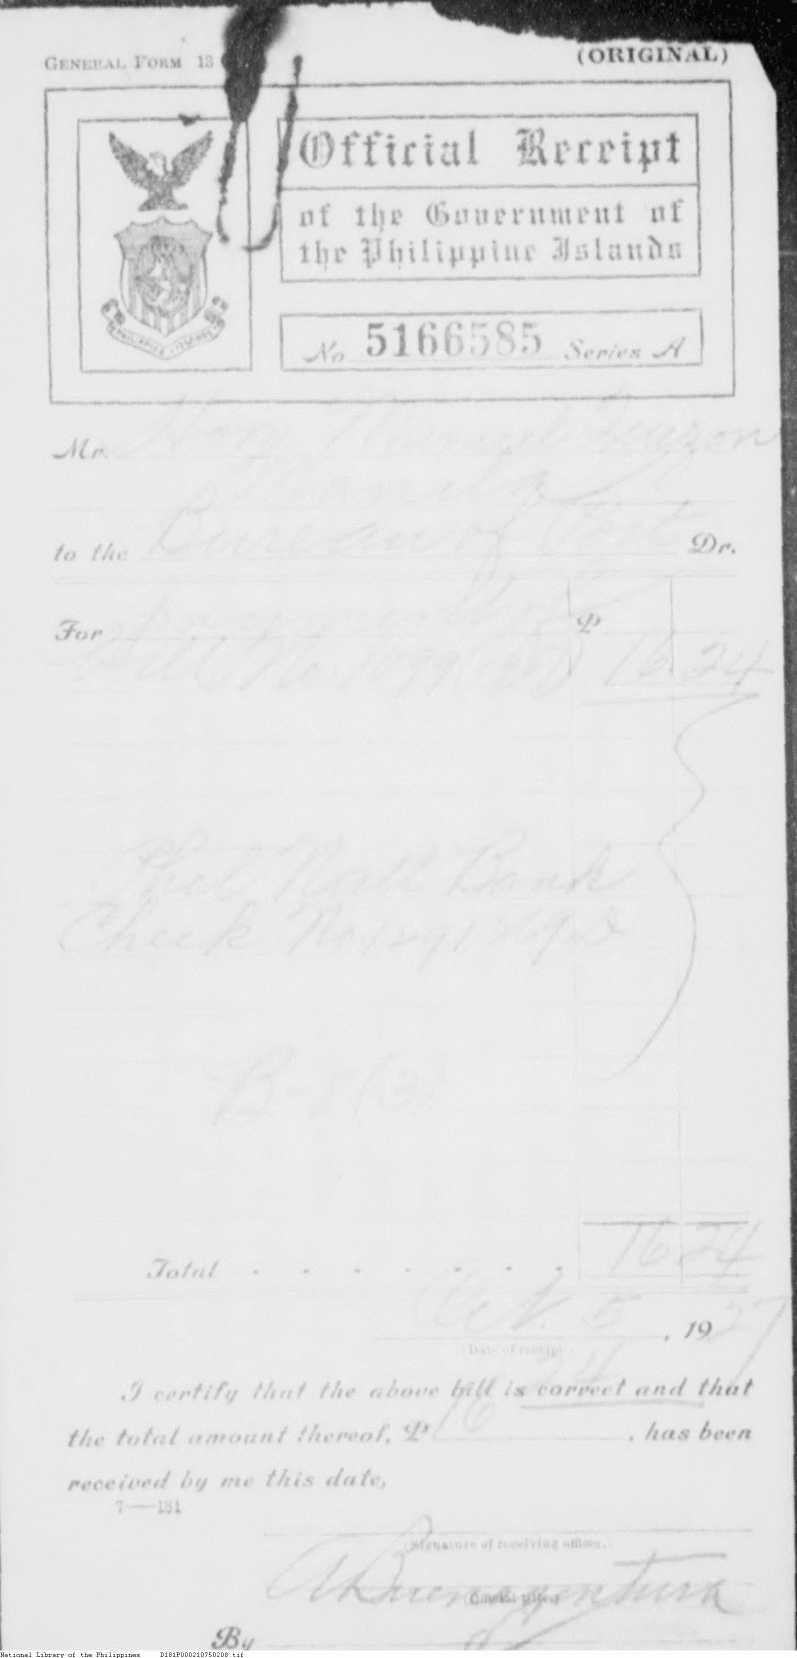 GENERAL FORM 13
(ORIGINAL)
Official Receipt
of the Government of
the Philippine Islands
No 5166585 Series A
Mr. Hon. Manuel Quezon
Manila
to the Bureau of Post Dr.
For payment of ₱
Bill No. 16 24
Phil. Natl Bank
Check No
B-8(3)
Total . . . . . . . 16 24
Oct. 5, 1927
(Date of receipt)
I certify that the above bill is correct and that
24
the total amount thereof, ₱ 16, has been
received by me this date,
7—131
(Signature of receiving officer.)
A Buenaventura
(Official title.)
By
National Library of the Philippines D181P000210750208.tif